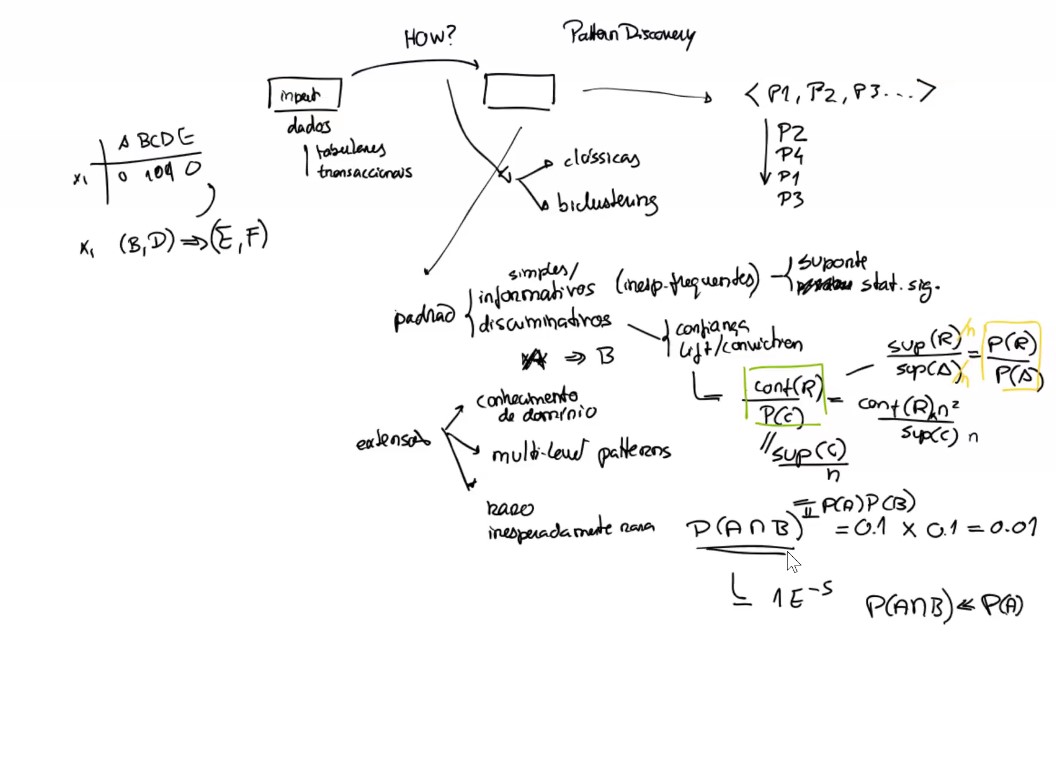 HOW?
Pattern Discovery
input
dados
tabulares
transaccionais
< P1, P2, P3... >
P2
P4
P1
P3
A B C D E
x₁ 0 0
x₁ (B,D) ⇒ (E,F)
clássicas
biclustering
padrão
simples/
informativos (inesp. frequentes)
discriminativos
suporte
stat. sig.
A ⇒ B
confiança
lift/conviction
conf(R)
P(C)
=
sup(R)/n
sup(A)/n
=
P(R)
P(A)
conf(R) n²
sup(C) n
// sup(C)
n
extensões
conhecimento
de domínio
multi-level patterns
raro
inesperadamente raro
P(A∩B)
= P(A)P(B)
= 0.1 × 0.1 = 0.01
1E⁻⁵
P(A∩B) << P(A)